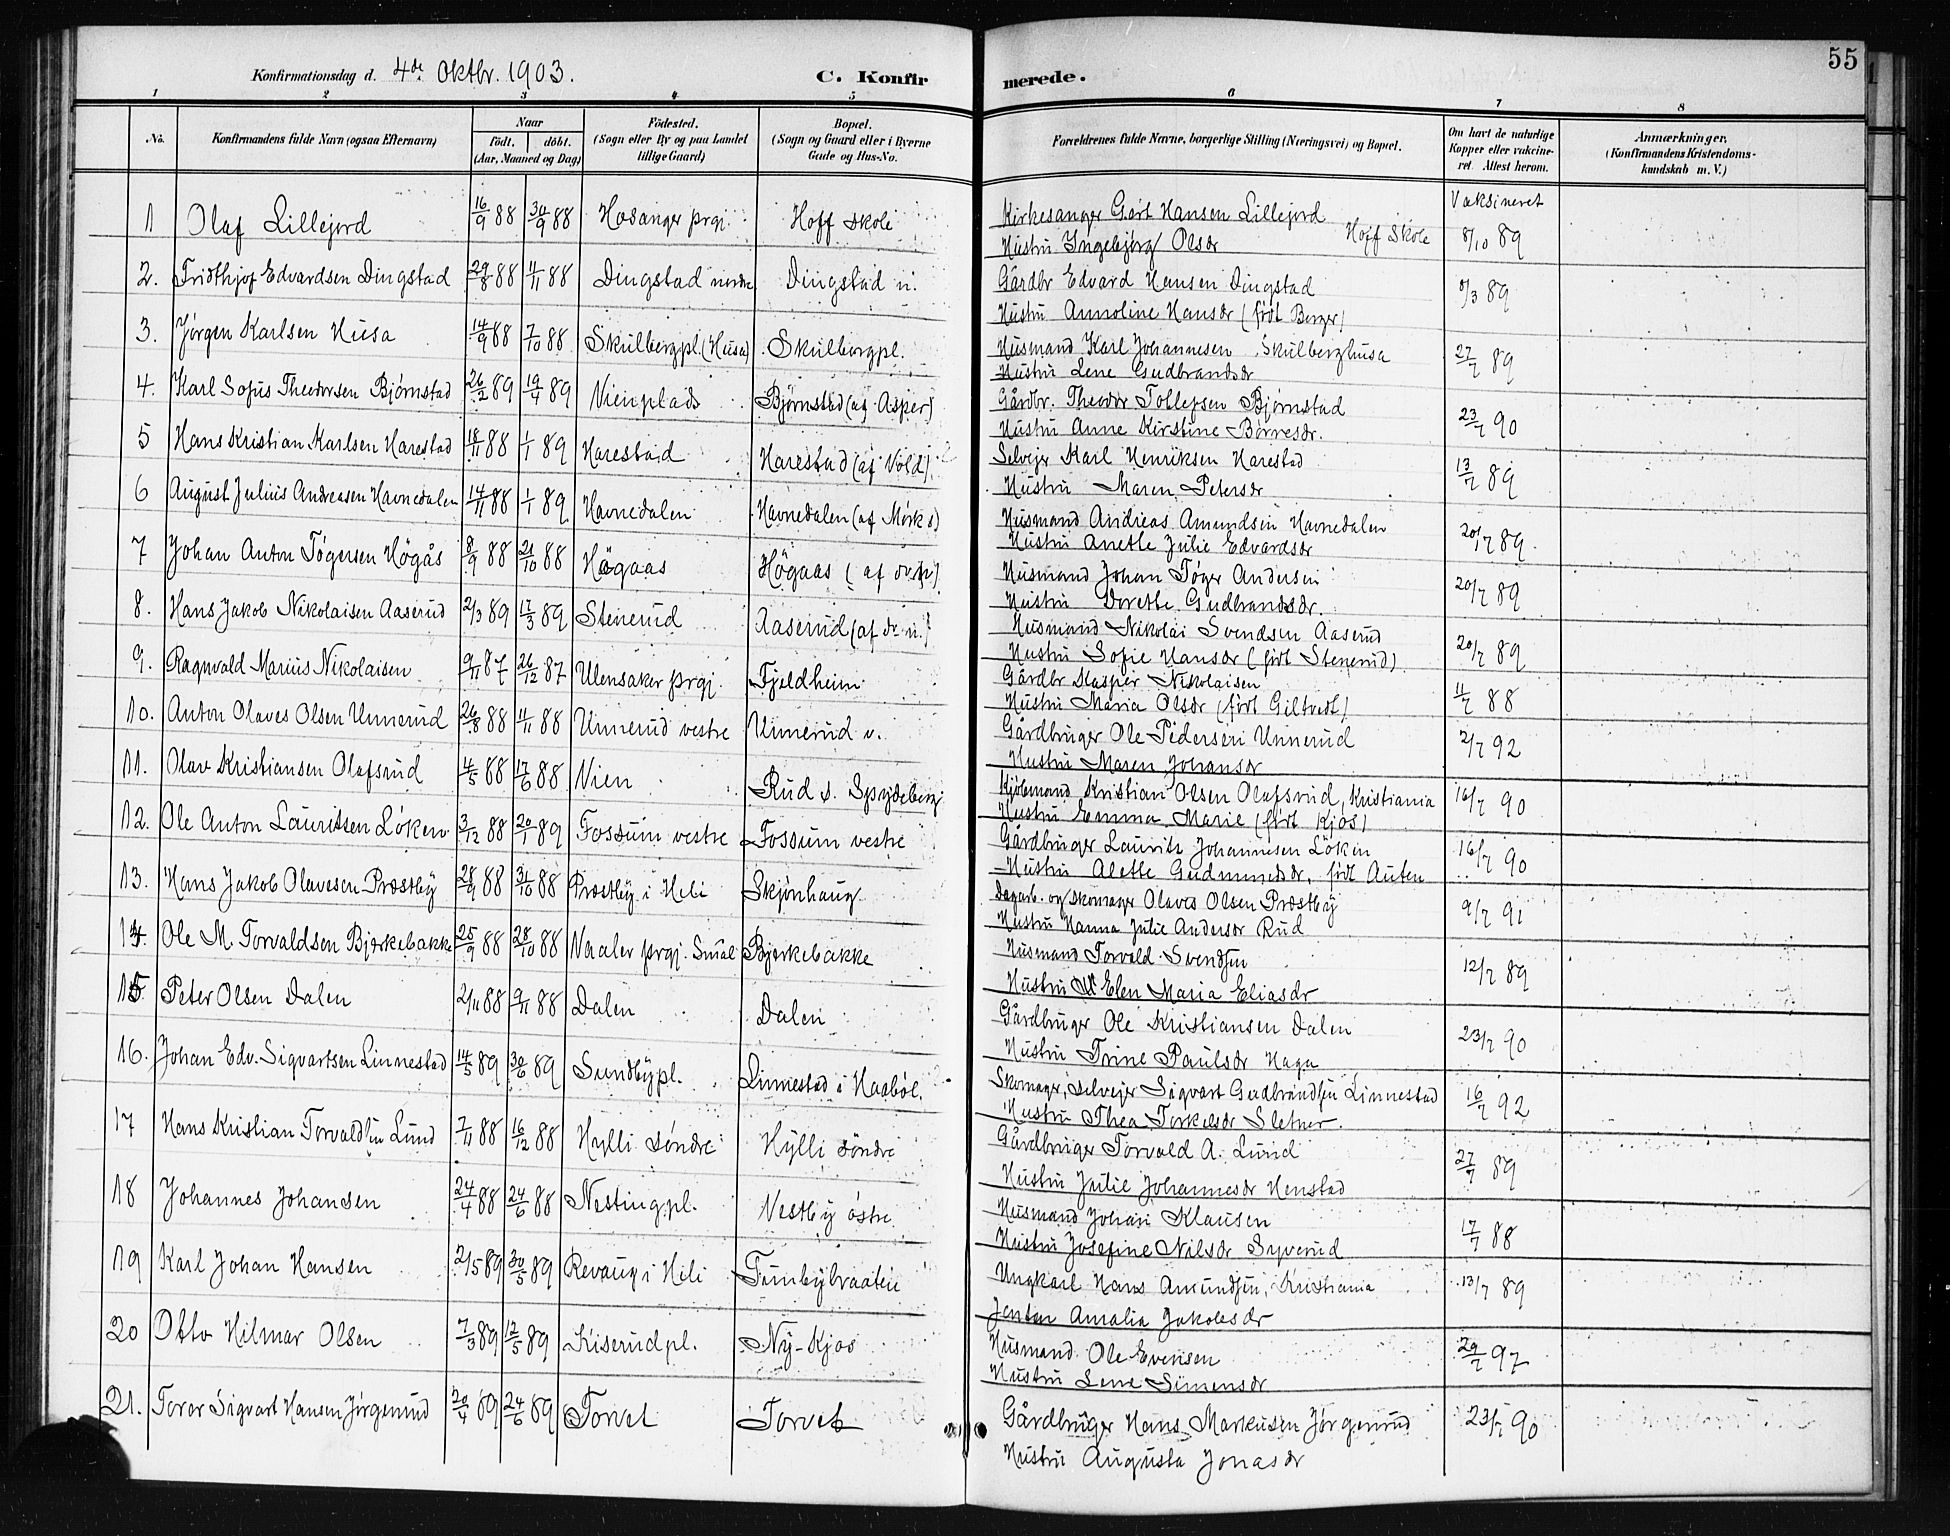 55
Konfirmationsdag d. 4de Oktbr. 1903. C. Konfir merede.
1 2 3 4 5 6 7 8
No.
Konfirmandens fulde Navn (ogsaa Efternavn)
Naar
født. døbt.
(Aar, Maaned og Dag)
Fødested.
(Sogn eller By og paa Landet
tillige Gaard)
Bopæl.
(Sogn og Gaard eller i Byerne
Gade og Hus-No.
Forældrenes fulde Navne, borgerlige Stilling (Næringsvei) og Bopæl.
Om havt de naturlige
Kopper eller vakcine-
ret. Attest herom.
Anmærkninger,
(Konfirmandens Kristendoms-
kundskab m. V.)
1 Olaf Lillejord 16/9 88 30/9 88 Hosanger prgj. Hoff skole Kirkesanger Gert Hansen Lillejord Vaksineret
Hustru Ingebjørg Olsdr Hoff Skole 8/10 89
2. Fridthjof Edvardsen Dingstad 29/8 88 4/11 88 Dingstad nordre Dingstad n. Gårdbr Edvard Hansen Dingstad 8/3 89
Hustru Annoline Hansdr (født Berger)
3. Jørgen Karlsen Husa 14/9 88 7/10 88 Skulbergpl. (Husa) Skulbergpl. Husmand Karl Johannesen Skulberghusa 27/7 89
Hustru Lene Gudbrandsdr
4. Karl Sofus Theodorsen Bjørnstad 26/2 89 19/4 89 Vienplads Bjørnstad (af Asper) Gårdbr. Theodor Tollefsen Bjørnstad 23/7 90
Hustru Anne Kirstine Børresdr.
5 Hans Kristian Karlsen Harestad 18/11 88 1/1 89 Harestad Harestad (af Vold) Selvejer Karl Henriksen Harestad 13/7 89
Hustru Maren Petersdr
6 August Julius Andreasen Havnedalen 14/11 88 1/1 89 Havnedalen Havnedalen (af Mørk s) Husmand Andreas Amundsen Havnedalen 20/7 89.
Hustru Anette Julie Edvardsdr
7 Johan Anton Tøgersen Høgås 8/9 88 21/10 88 Høgaas Høgaas (af Husmand Johan Tøger Andersen 20/7 89
Hustru Dorette Gudbrandsdr.
8. Hans Jakob Nikolaisen Aaserud 2/3 89 17/3 89 Stenerud Aaserud (af Husmand Nikolai Svendsen Aaserud 20/7 89
Hustru Sofie Hansdr (født Stenerud)
9. Ragnvald Marius Nikolaisen 9/11 87 26/12 87 Ulensaker prgj. Fjeldheim Gårdbr Kasper Nikolaisen 4/7 88
Hustru Maria Olsdr (født Giltvedt)
10. Anton Olaves Olsen Unnerud 26/8 88 4/11 88 Unnerud vestre Unnerud v. Gårdbruger Ole Pedersen Unnerud 2/7 92
Hustru Maren Johansdr
11. Olav Kristiansen Olafsrud 4/5 88 17/6 88 Vien Rud s. Spydeberg Kjøbmand Kristian Olsen Olafsrud, Kristiania 16/7 90
Hustru Emma Marie (født Kjos)
12. Ole Anton Lauritsen Løken 3/12 88 20/1 89 Fossum vestre Fossum vestre Gårdbruger Laurits Johannesen Løken 16/7 90
Hustru Alette Gudmundsdr, født Auten
13. Hans Jakob Olavesen Præstby 28/9 88 31/10 88 Præstby i Heli Skjønhaug Dagarb. og Skomager Olaves Olsen Præstby 9/7 91
Hustru Hanna Julie Andersdr Rud
14 Ole M. Torvaldsen Bjerkebakke 25/9 88 28/10 88 Vaaler prgj. Smål Bjerkebakke Husmand Torvald Svendsen 12/7 89
Hustru Elen Maria Eliasdr
15 Peter Olsen Dalen 2/11 88 9/11 88 Dalen Dalen Gårdbruger Ole Kristiansen Dalen 23/7 90
Hustru Trine Paulsdr Haga
16. Johan Edv. Sigvartsen Linnestad 14/5 89 30/6 89 Sundbypl. Linnestad i Haabøl. Skomager, selvejer Sigvart Gudbrandsen Linnestad 16/7 92
Hustru Thea Torkelsdr Sletner
17 Hans Kristian Torvaldsen Lund 7/11 88 16/12 88 Hylli søndre Hylli søndre Gårdbruger Torvald A. Lund 27/7 89
Hustru Julie Johannesdr Henstad
18 Johannes Johansen 24/4 88 24/6 88 Nestingpl. Vestby østre Husmand Johan Klausen 17/7 88
Hustru Josefine Nilsdr Syverud
19 Karl Johan Hansen 2/5 89 30/5 89 Revaug i Heli Tunbybraaten Ungkarl Hans Amundsen, Kristiania 13/7 89
Jenten Amalia Jakobsdr
20 Otto Hilmar Olsen 7/3 89 12/5 89 Kiserudpl. Ny-Kjos Husmand Ole Evensen 29/7 97
Hustru Lene Simensdr
21. Toror Sigvart Hansen Jørgenrud 20/4 89 24/6 89 Torvet Torvet Gårdbruger Hans Markusen Jørgenrud 23/7 90
Hustru Augusta Jonasdr